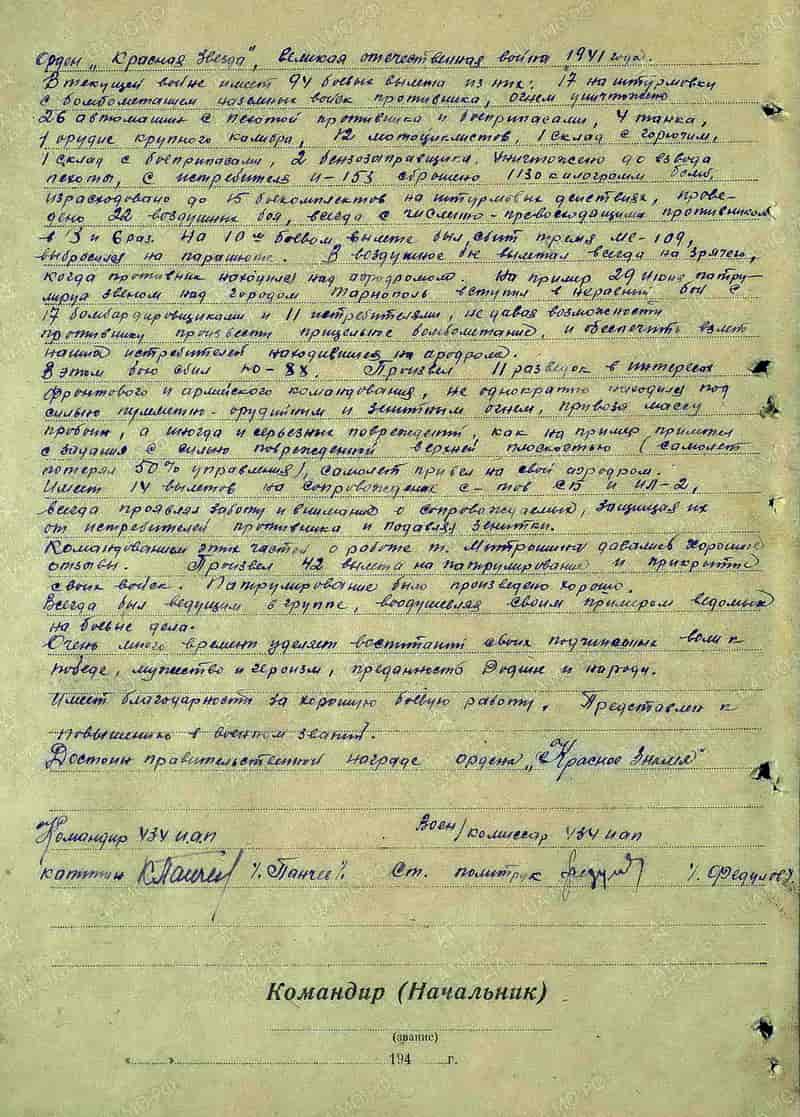 Орден „Красная Звезда", Великая отечественная война 1941 года.
В текущей войне имеет 94 боевых вылета из них: 17 на штурмовку
с бомбометанием наземных войск противника, огнем уничтожено
26 автомашин с пехотой противника и боеприпасами, 4 танка,
1 орудие крупного калибра, 12 мотоциклистов, 1 склад с горючим,
1 склад с боеприпасами, 2 бензозаправщика. Уничтожено до взвода
пехоты, с истребителя И-153 сброшено 1130 килограмм бомб,
израсходовано до 15 боекомплектов на штурмовых действиях, прове-
дено 22 воздушных боя, всегда с численно-превосходящим противником
в 3 и 6 раз. На 10м боевом вылете был сбит тремя МЕ-109,
выбросился на парашюте. В воздушные бои вылетал всегда на зрячею,
когда противник находился над аэродромом. На пример 29 июня патру-
лируя звеном над городом Тарнополь вступил в неравный бой с
17 бомбардировщиками и 11 истребителями, не давая возможности
противнику произвести прицельное бомбометание, и обеспечить взлет
наших истребителей находившиеся на ародроме.
В этом бою сбил Ю-88. Произвел 11 разведок в интересах
фронтового и армейского командования, не однократно находился под
сильно пулеметно-орудийным и зенитным огнем, привозя массу
пробоин, а иногда и серьезные повреждения, как на пример прилетел
с задания с сильно поврежденной верхней плоскостью (самолет
потерял 50% управления), самолет привел на свой аэродром.
Имеет 14 вылетов на сопровождение с-тов СБ и ИЛ-2,
всегда проявлял заботу и внимание о сопровождаемых, защищая их
от истребителей противника и подавляя зенитки.
Командованием этих частей о работе т. Митрошина давались хорошие
отзывы. Произвел 42 вылета на патрулирование и прикрытие
своих войск. Патрулирование было произведено хорошо.
Всегда был ведущим в группе, воодушевляя своим примером ведомых
на боевые дела.
Очень много времени уделяет воспитании своих подчиненных воли к
победе, мужество и героизм, преданность Родине и народу.
Имеет благодарности за хорошую боевую работу. Представлен к
повышению в военном звании.
Достоин правительственной награде ордена „Красное Знамя"
Командир 434 иап Воен/комиссар 434 иап
капитан /. Панчев/. Ст. политрук /. Федулов/.
Командир (Начальник)
(звание)
„ " 194 г.